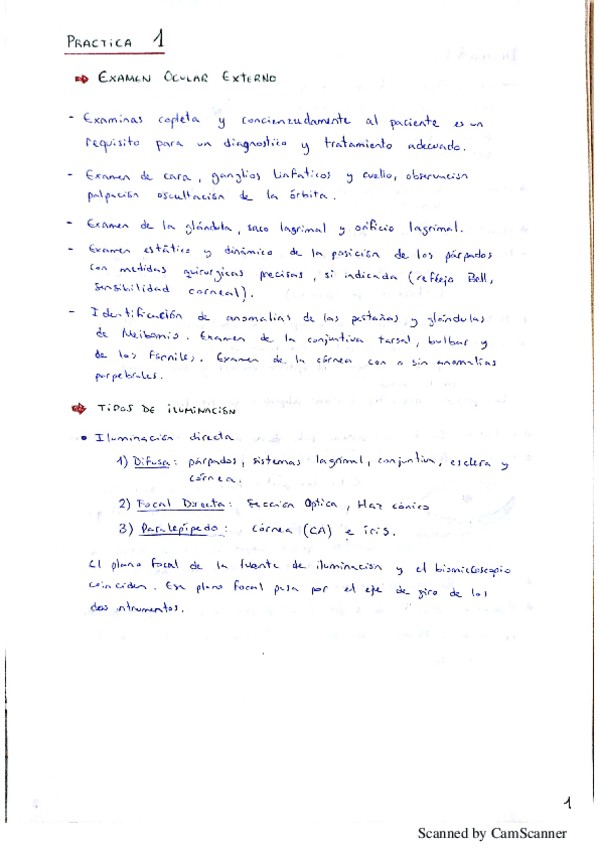 PRACTICA 1
⇒ EXAMEN OCULAR EXTERNO
- Examinas copleta y concienzudamente al paciente es un
requisito para un diagnostico y tratamiento adecuado.
- Examen de cara, ganglios linfaticos y cuello, observación
palpación oscultación de la órbita.
- Examen de la glándula, saco lagrimal y orificio lagrimal.
- Examen estático y dinámico de la posición de los párpados
con medidas quirurgicas precisas, si indicada (reflejo Bell,
sensibilidad corneal).
- Identificación de anomalias de las pestañas y glándulas
de Meibomio. Examen de la conjuntiva tarsal, bulbar y
de los fórniles. Examen de la córnea con o sin anomalías
parpebrales.
⇒ TIPOS DE ILUMINACIÓN
• Iluminación directa
1) Difusa: párpados, sistemas lagrimal, conjuntiva, esclera y
córnea.
2) Focal Directa: Sección Optica, Haz cónico
3) Paralepípedo: córnea (CA) e iris.
El plano focal de la fuente de iluminación y el biomicroscopio
coinciden. Ese plano focal pasa por el eje de giro de los
dos intrumentos.
1
Scanned by CamScanner